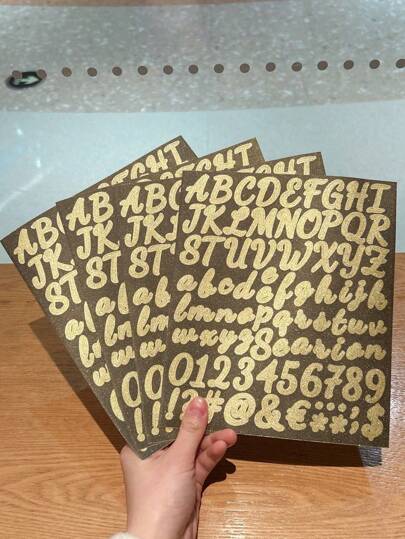 ABCDEFGHI
JKLMNOPQR
STUVWXYZ
abcdefghijk
lmnopqrstuv
wxyzSearion
0123456789
!?#@&€:;**;$